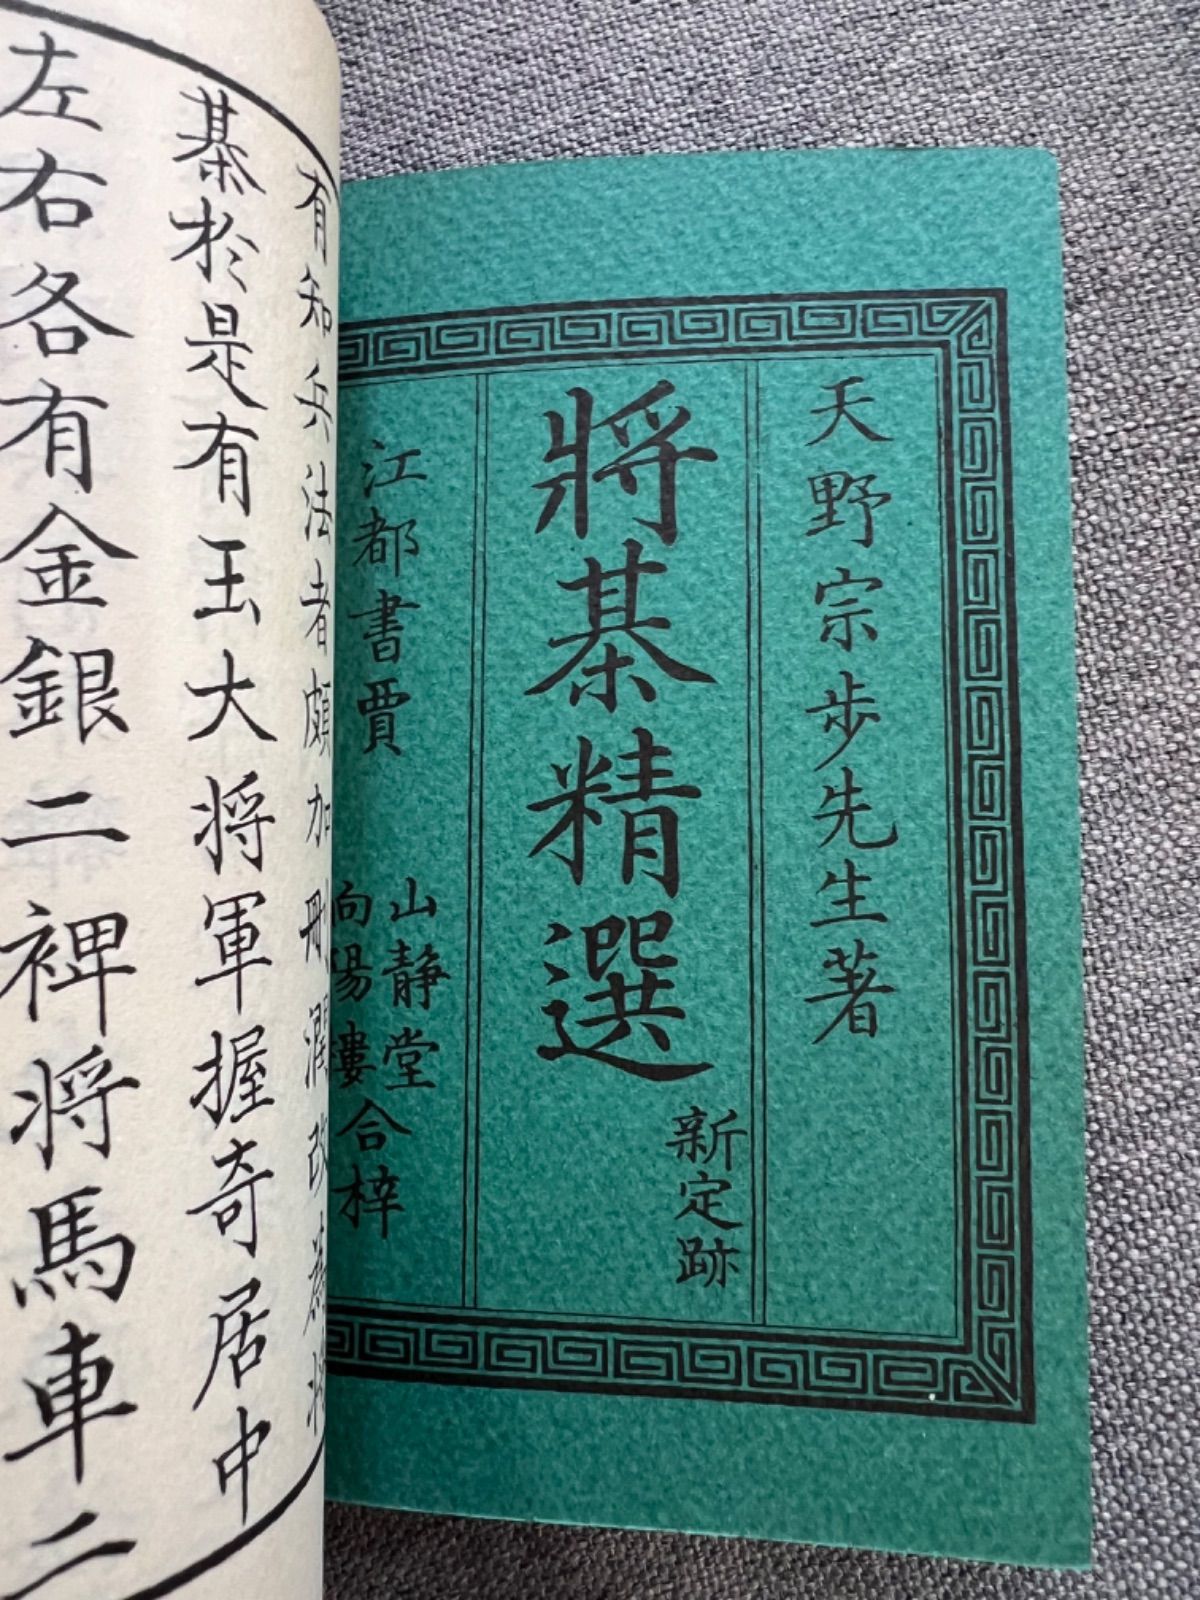 天野宗歩先生著
將棊精選
新定跡
江都書賈
山静堂
向陽樓
合梓
有知兵法者頗加刪潤改
棊於是有玉大将軍握奇居中
左右各有金銀二裨将馬車二